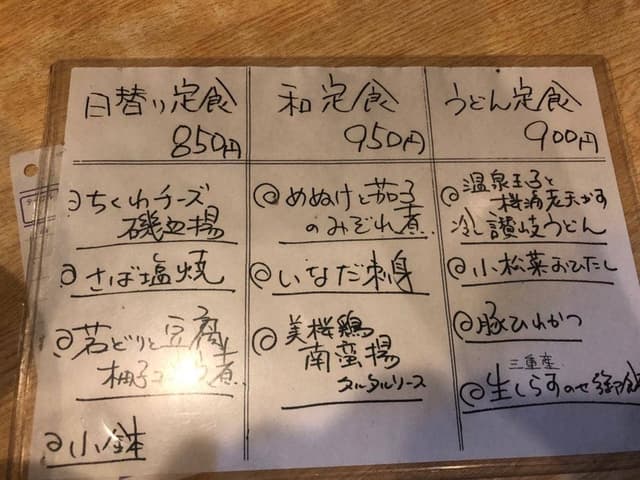 日替り定食
850円
ちくわチーズ
磯辺揚
さば塩焼
若どりと豆腐
柚子コ 煮
小鉢
和定食
950円
めぬけと茄子
のみぞれ煮
いなだ刺身
美桜鶏
南蛮揚
タルタルソース
うどん定食
900円
温泉玉子と
桜海老天かす
冷し讃岐うどん
小松菜おひたし
豚ひれかつ
三重産
生しらすのせ御飯